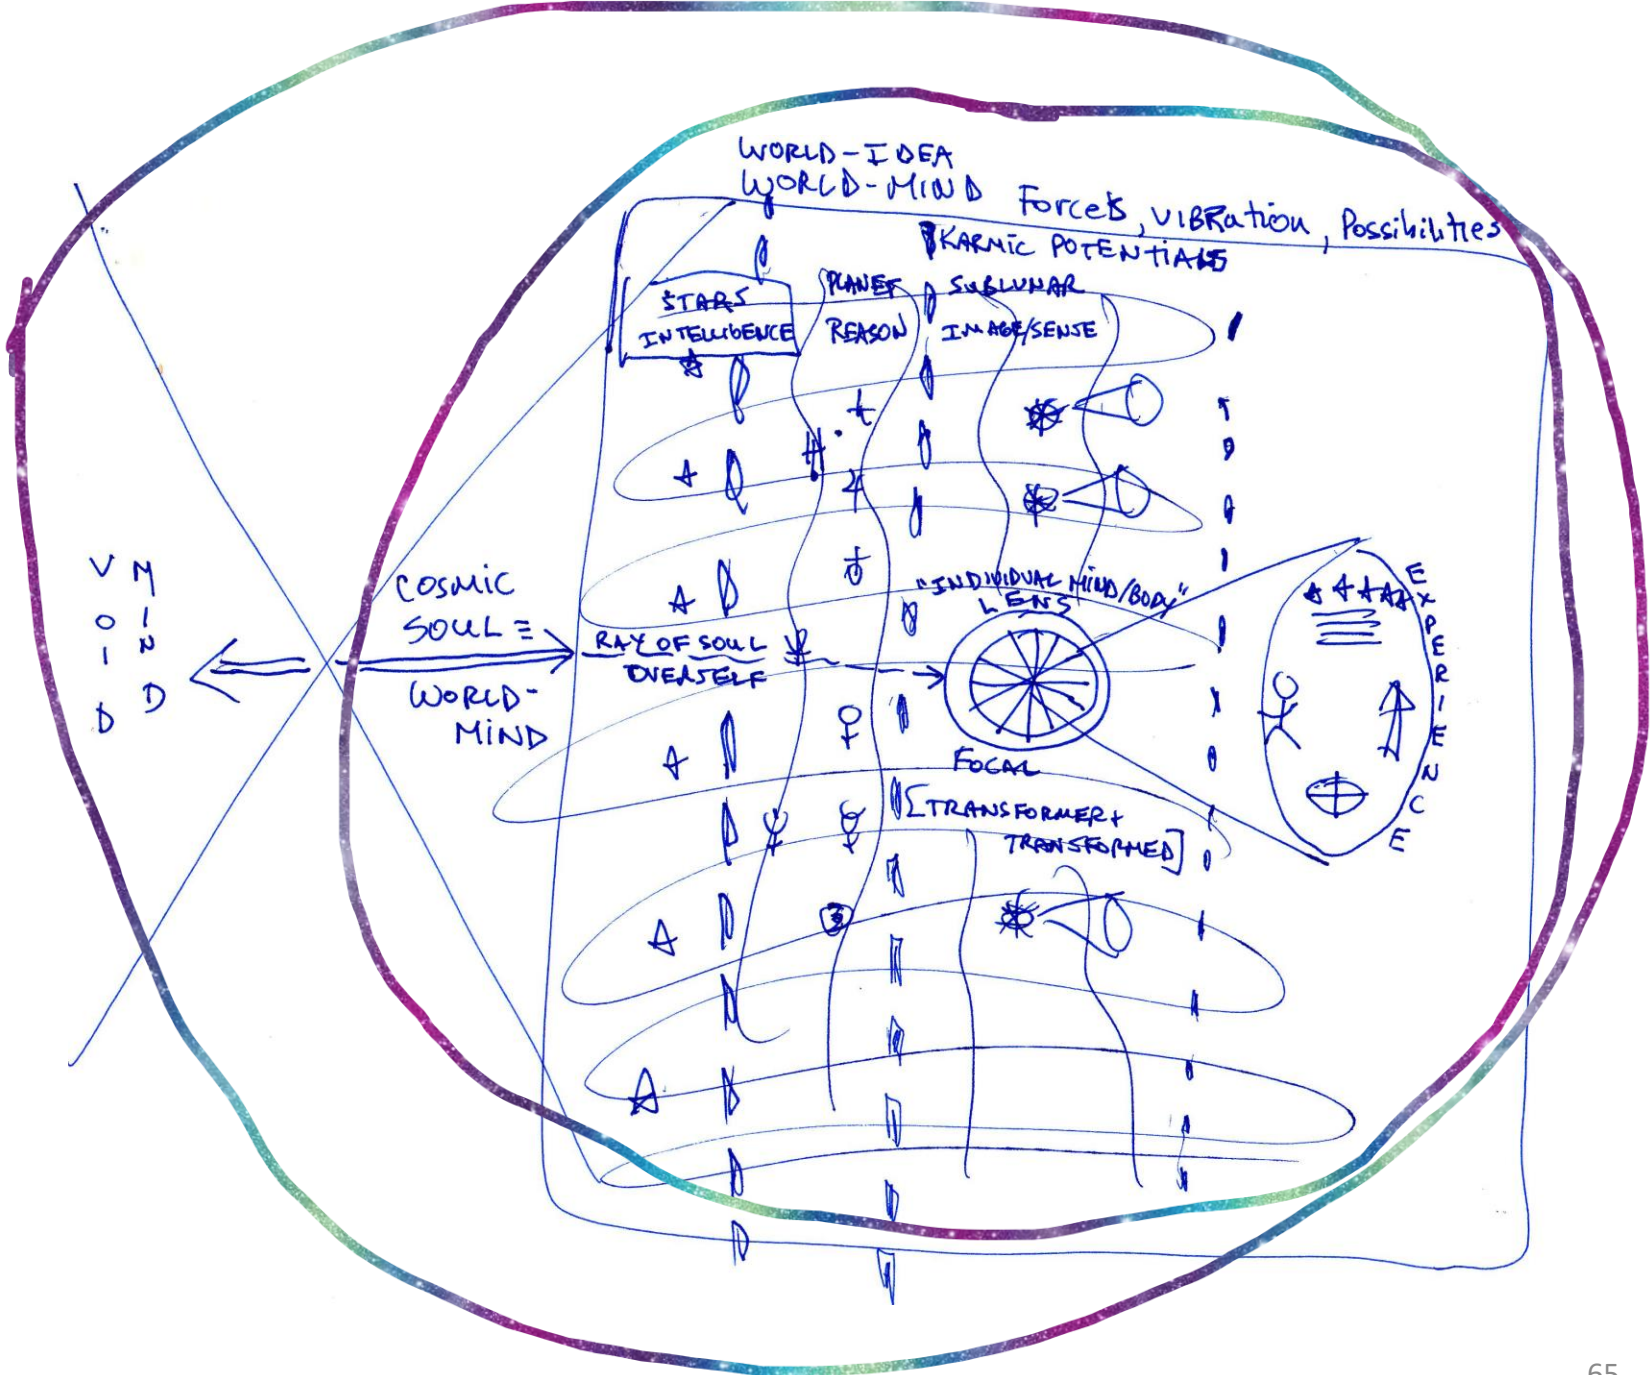 WORLD-IDEA
WORLD-MIND
Forces, VIBRation, Possibilities
KARMIC POTENTIALS
STARS
INTELLIGENCE
PLANET
REASON
SUBLUNAR
IMAGE/SENSE
VOID
MIND
COSMIC
SOUL ≡
WORLD-
MIND
RAY OF SOUL
OVERSELF
"INDIVIDUAL MIND/BODY"
LENS
FOCAL
[TRANSFORMER+
TRANSFORMED]
EXPERIENCE
65